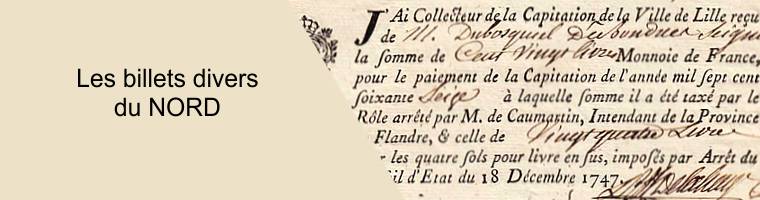 Les billets divers
du NORD
J'Ai Collecteur de la Capitation de la Ville de Lille reçu
de M. Dubosquiel Desbondues Seigne
la somme de Cent Vingt livres Monnoie de France,
pour le paiement de la Capitation de l'année mil sept cent
soixante Seize à laquelle somme il a été taxé par le
Rôle arrêté par M. de Caumartin, Intendant de la Province
Flandre, & celle de Vingt quatre Livre
les quatre sols pour livre en sus, imposés par Arrêt du
il d'Etat du 18 Décembre 1747.